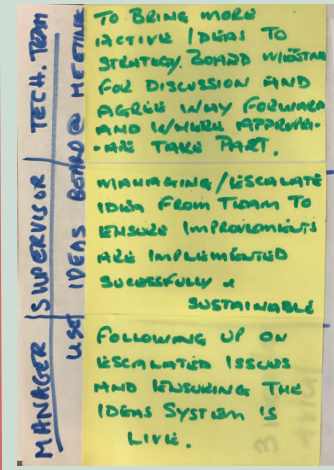 MANAGER / SUPERVISOR / TECH. TEAM
USE IDEAS BOARD @ MEETING
TO BRING MORE
ACTIVE IDEAS TO
STRATEGY BOARD
FOR DISCUSSION AND
AGREE WAY FORWARD
AND WHERE APPROPRI-
-ATE TAKE PART.
MANAGING/ESCALATE
IDEA FROM TEAM TO
ENSURE IMPROVEMENTS
ARE IMPLEMENTED
SUCESSFULLY &
SUSTAINABLE
FOLLOWING UP ON
ESCALATED ISSUES
AND ENSURING THE
IDEAS SYSTEM IS
LIVE.